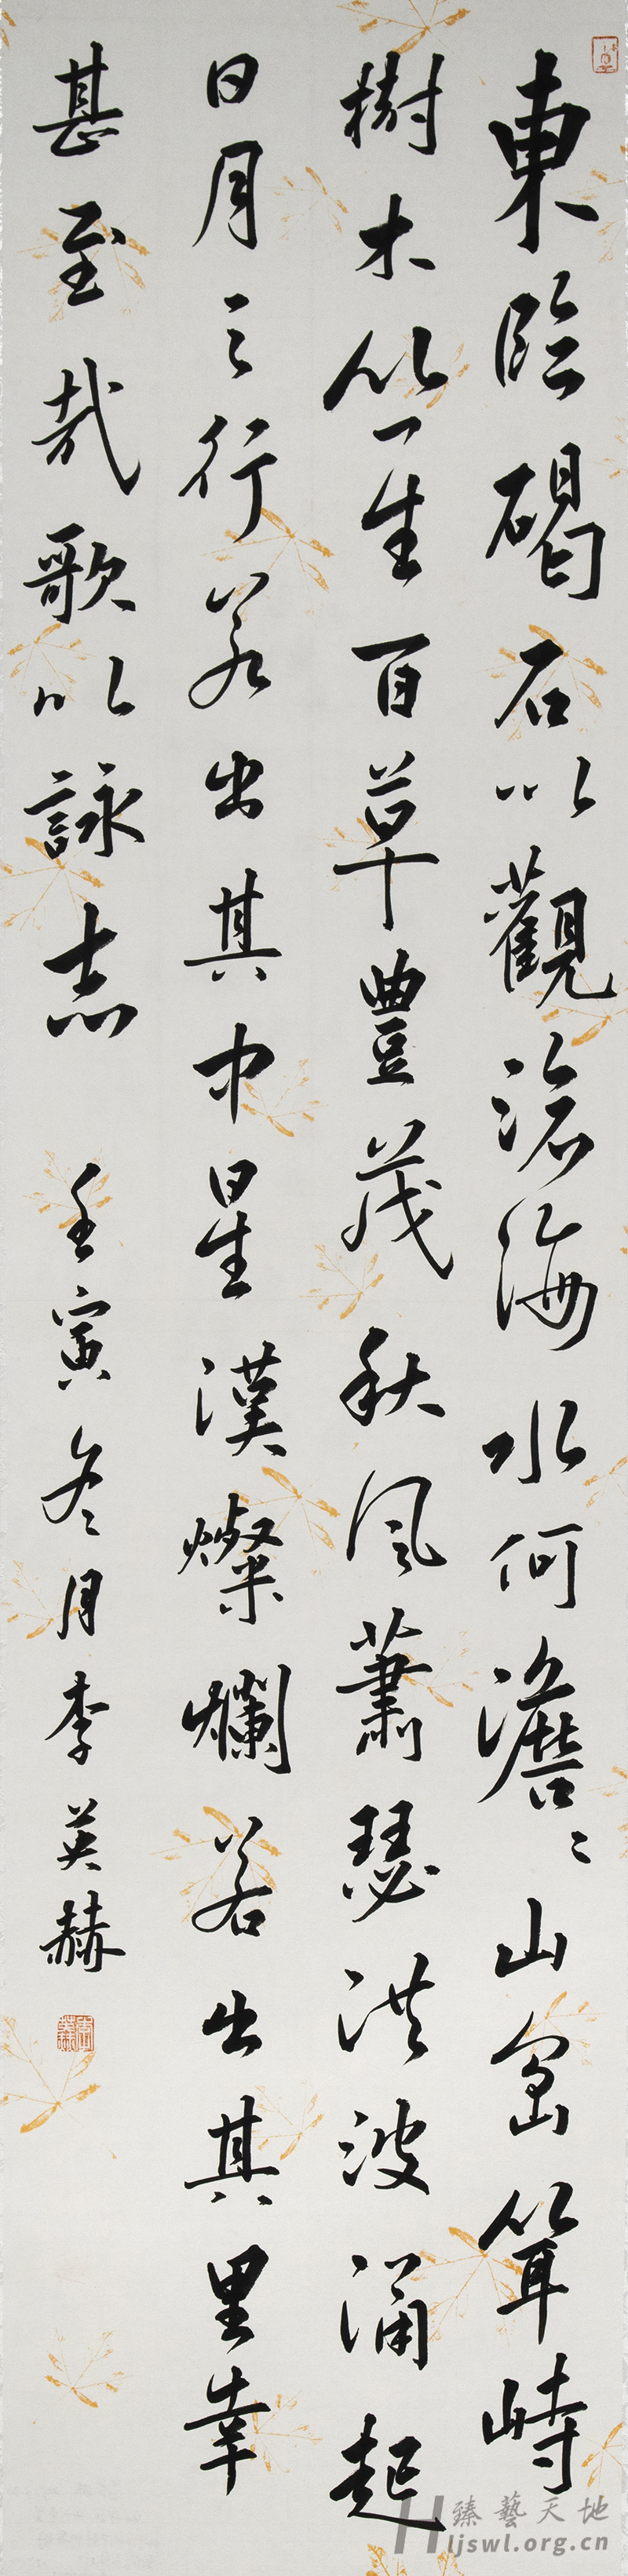 東臨碣石以觀滄海水何澹〻山島聳峙
樹木丛生百草豐茂秋風蕭瑟洪波涌起
日月之行若出其中星漢燦爛若出其里幸
甚至哉歌以詠志 壬寅冬月李英赫
臻藝天地
Hljswl.org.cn